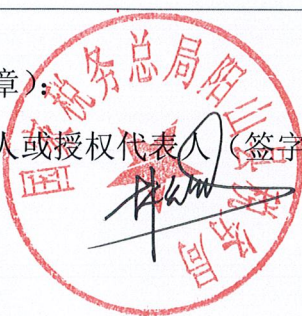 章）：
人或授权代表人（签字
国家税务总局阳山县税务局